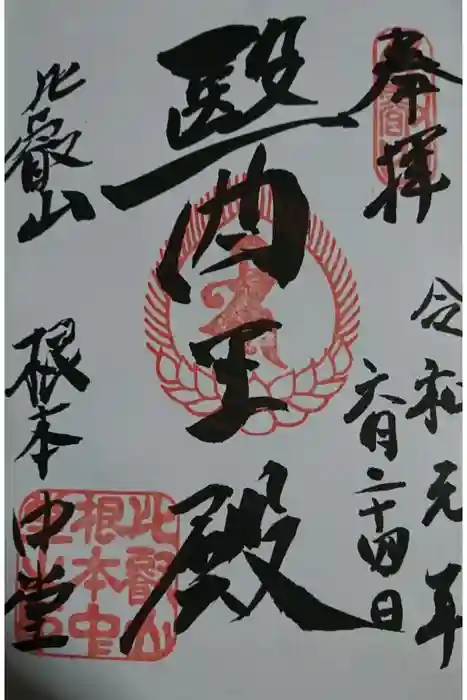 奉拝
令和元年
六月二十四日
醫王殿
比叡山
根本中堂
比叡山
根本中
堂